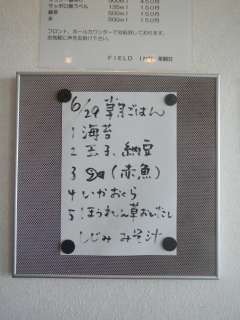 サッポロ黒ラベル 135ml 150円
緑茶 500ml 150円
水 500ml 150円
フロント、ホールカウンターで対応致しております。
お気軽に声をお掛け下さい。
FIELD INN
6/29 朝ごはん
1 海苔
2 玉子、納豆
3 (赤魚)
4 いかおくら
5 ほうれん草おひたし
しじみ みそ汁